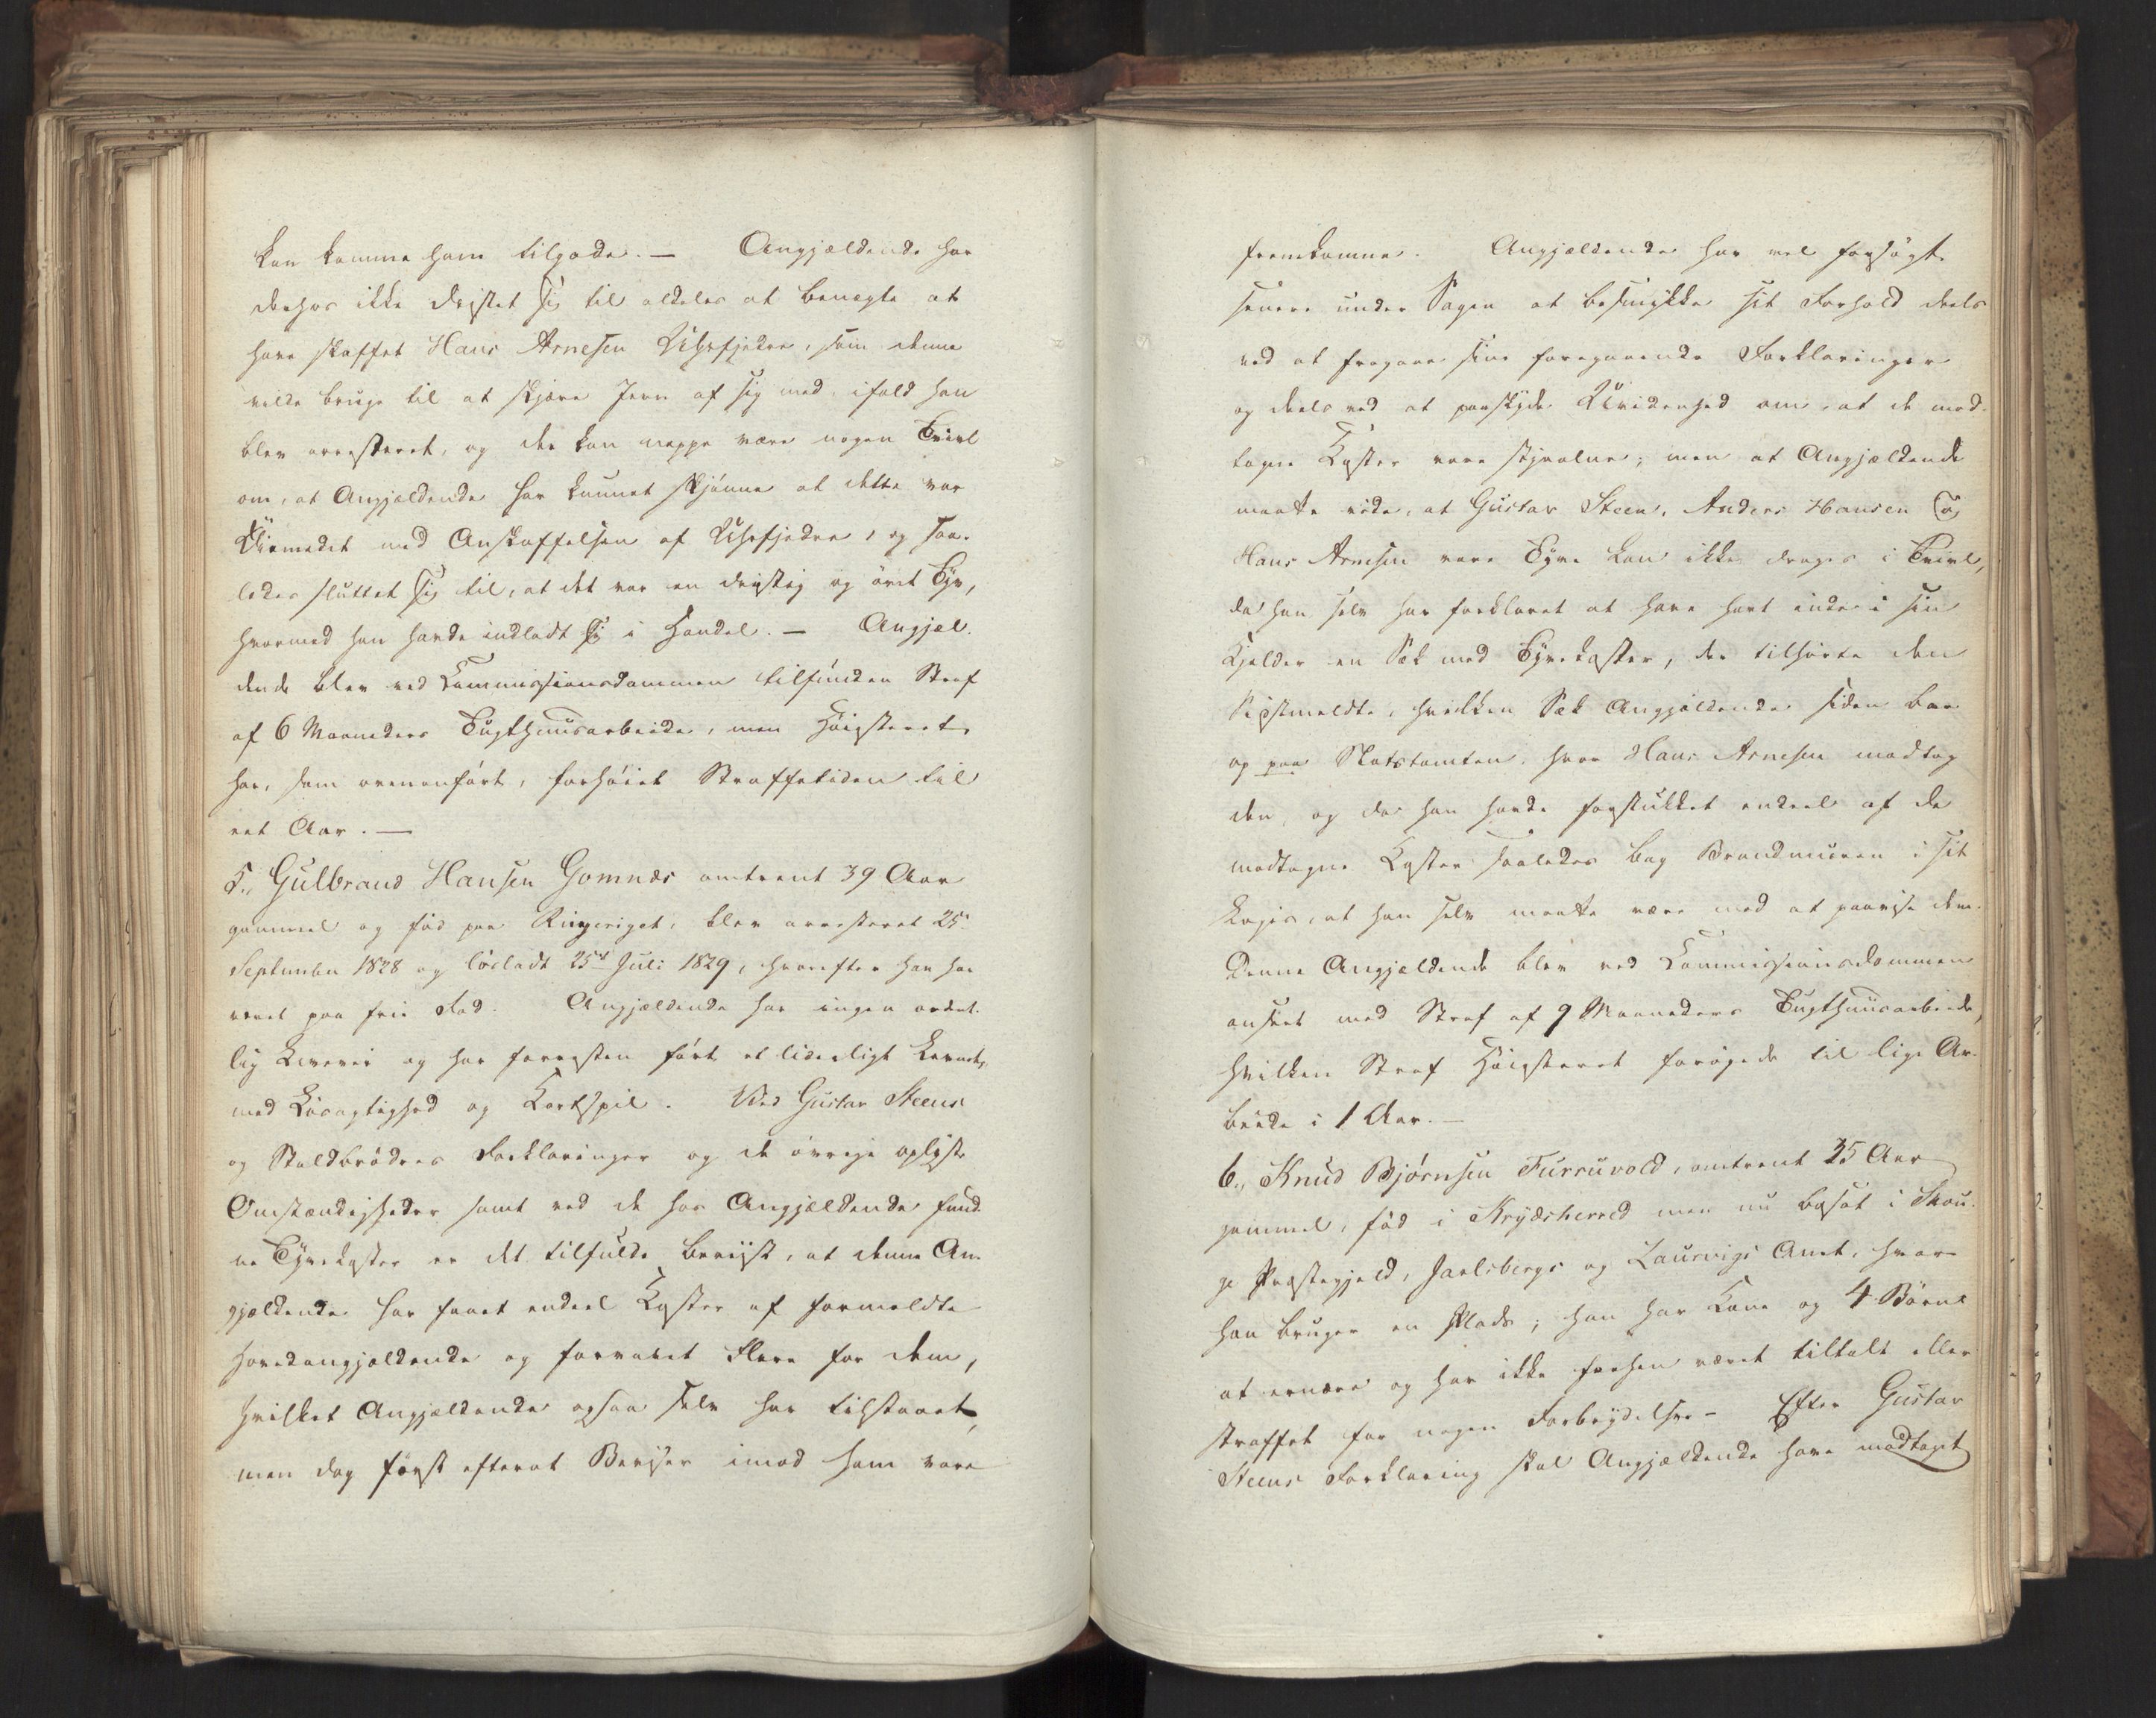 kan komme ham tilgode. — Angjældende har
derhos ikke dristet sig til aldeles at benægte at
have skaffet Hans Arnesen Uhrfjedre, som denne
vilde bruge til at skjære Jern af sig med, ifald han
blev arresteret, og der kan neppe være nogen Tvivl
om, at Angjældende har kunnet skjønne at dette var
Øiemedet med Anskaffelsen af Uhrfjedre, og saa-
ledes sluttet sig til, at det var en dristig og övet Tyv,
hvormed han havde indladt sig i Handel. — Angjæl-
dende blev ved Commissionsdommen tilfunden Straf
af 6 Maaneders Tugthuusarbeide, men Höiesteret
har, som ovenanført, forhöiet Straffetiden til
eet Aar. —
5., Gulbrand Hansen Gomnæs omtrent 39 Aar
gammel og föd paa Ringeriget, blev arresteret 25.
September 1828 og løsladt 25de Juli 1829, hvorefter han har
været paa frie Fod. Angjældende har ingen ordent-
lig Levevei og har forresten fört et liderligt Levnet,
med Lösagtighed og Kortspil. Ved Gustav Steens
og Staldbrödres Forklaringer og de övrige oplyste
Omstændigheder samt ved de hos Angjældende fund-
ne Tyvekoster er det tilfulde beviist, at denne An-
gjældende har faaet endeel Koster af formeldte
Hovedangjældende og forvaret Flere for dem,
hvilket Angjældende ogsaa selv har tilstaaet,
men dog først efterat Beviser imod ham vare
fremkomne. Angjældende har vel forsögt
senere under Sagen at besmykke sit Forhold deels
ved at fragaae sine foregaaende Forklaringer
og deels ved at paaskyde Uvidenhed om, at de mod-
tagne Koster vare stjaalne; men at Angjældende
maatte vide, at Gustav Steen, Anders Hansen og
Hans Arnesen vare Tyve kan ikke drages i Tvivl,
da han selv har forklaret at have havt inde i sin
Kjelder en Sæk med Tyvekoster, der tilhörte den
Sidstmeldte, hvilken Sæk Angjældende siden bar
op paa Slotstomten, hvor Hans Arnesen modtog
den, og da han havde forstukket endeel af de
modtagne Koster saaledes bag Brandmuren i sit
Logis, at han selv maatte være med at paavise dem.
Denne Angjældende blev ved Commissionsdommen
anseet med Straf af 9 Maaneders Tugthuusarbeide,
hvilken Straf Höiesteret forögede til lige Ar-
beide i 1 Aar. —
6., Knud Bjørnsen Furruvold, omtrent 35 Aar
gammel, föd i Krydsherred men nu bosat i Skou-
ge Præstegjeld, Jarlsbergs og Laurvigs Amt, hvor
han bruger en Plads; han har Kone og 4 Börn
at ernære og har ikke forhen været tiltalt eller
straffet for nogen Forbrydelse. — Efter Gustav
Steens Forklaring skal Angjældende have modtaget